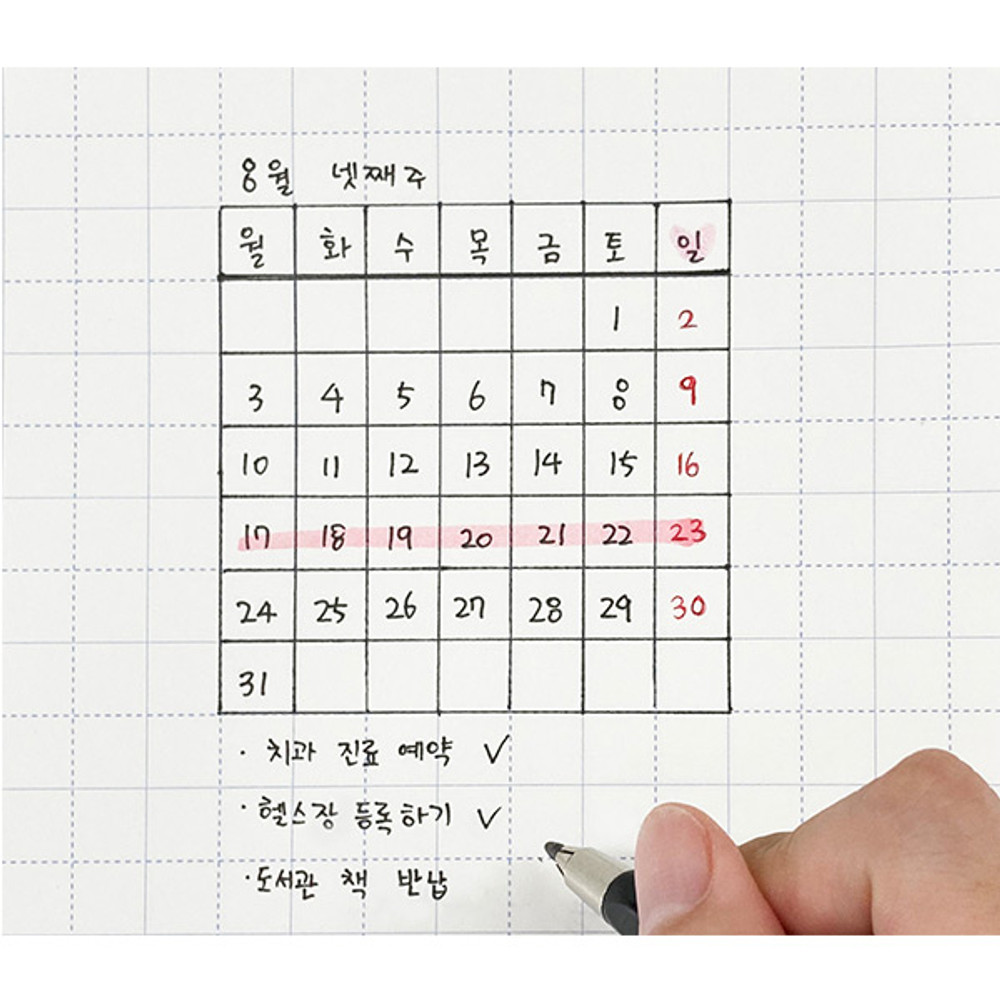 8월 넷째주
월 화 수 목 금 토 일
1 2
3 4 5 6 7 8 9
10 11 12 13 14 15 16
17 18 19 20 21 22 23
24 25 26 27 28 29 30
31
· 치과 진료 예약 ✓
· 헬스장 등록하기 ✓
· 도서관 책 반납